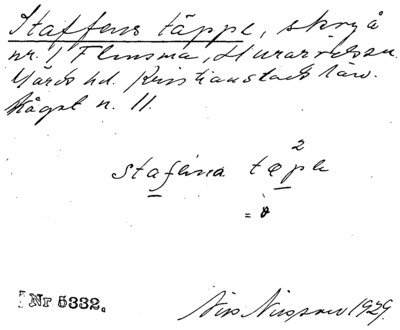 Staffens täppe, skryå
nr. 1 Flinsma, Hurarödssn.
Gärds hd. Kristianstads län.
Något n. 11.
stafens tæpe
2
=
Nr 5332.
Nils Nilsson 1929.